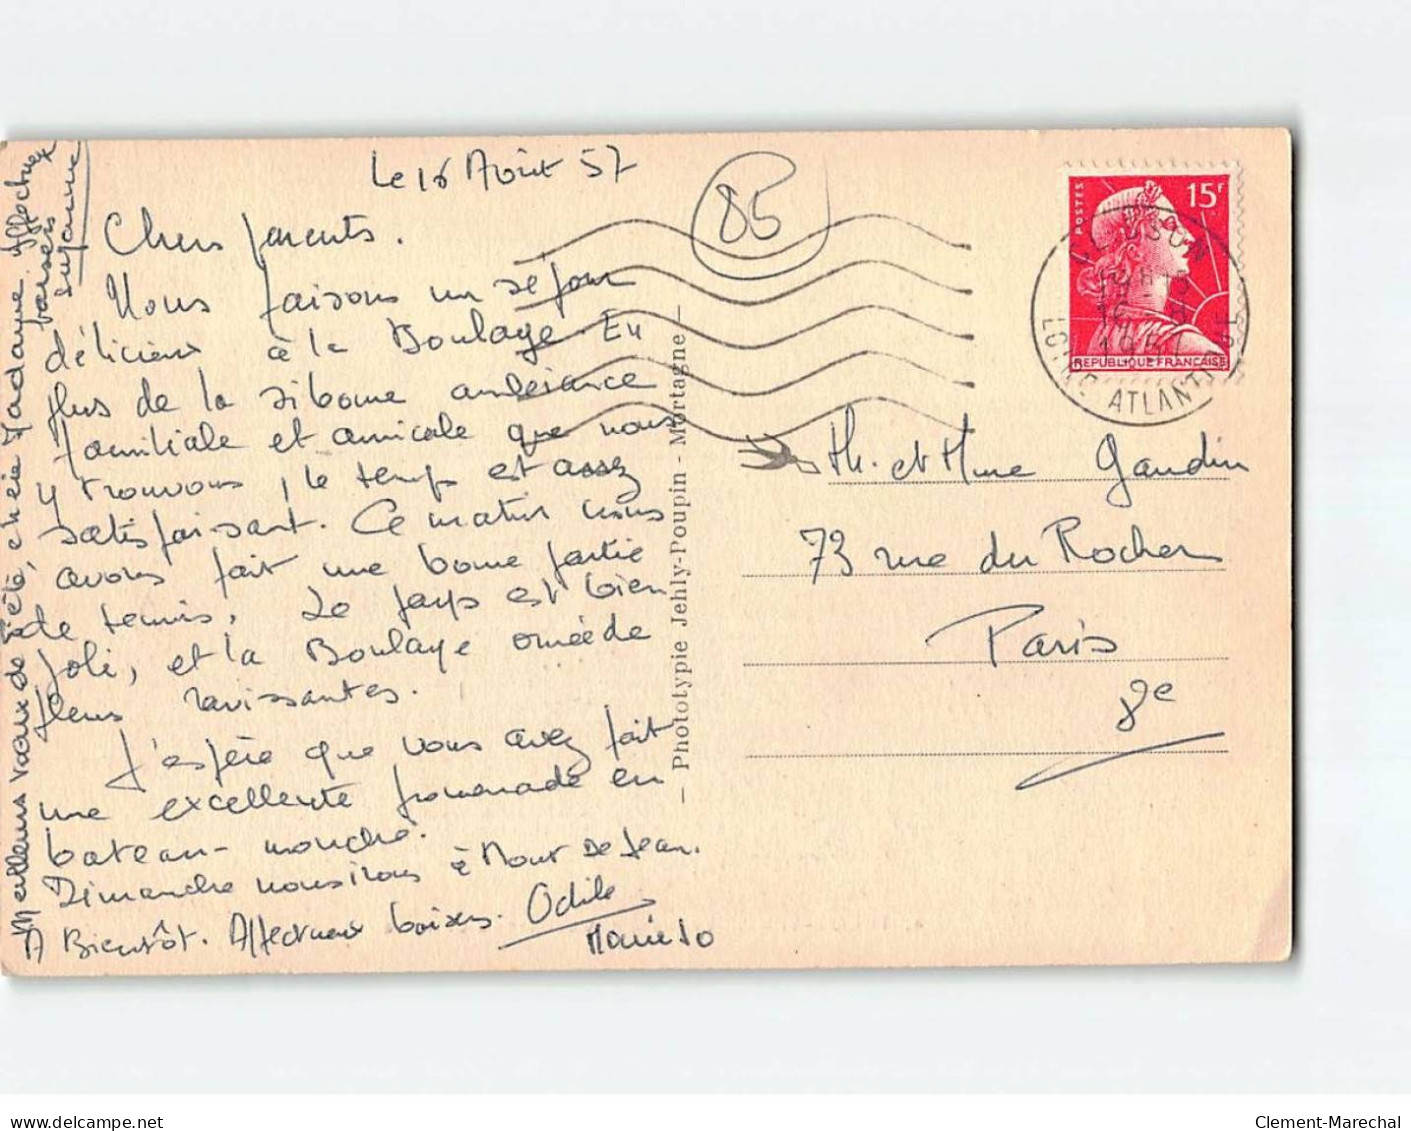 Le 16 Août 57
Chers parents.
Nous faisons un séjour
délicieux à la Boulaye. En
plus de la si bonne ambiance
familiale et amicale que nous
y trouvons, le temps est assez
satisfaisant. Ce matin nous
avons fait une bonne partie
de tennis. Le pays est bien
joli, et la Boulaye ornée de
fleurs ravissantes.
J'espère que vous avez fait
une excellente promenade en
bateau-mouche.
Dimanche nous irons à Mont de Jean.
A Bientôt. Affectueux baisers. Odile
Marie Jo
Meilleurs vœux de Fête, chère Madame. Affectueux
baisers
Suzanne
85
— Phototypie Jehly-Poupin - Mortagne —
15F
POSTES
REPUBLIQUE FRANÇAISE
CLISSON
16 - 8
1957
LOIRE ATLANTIQUE
M. et Mme Gaudin
73 rue du Rocher
Paris
8e
delcampe.net
Clement-Marechal